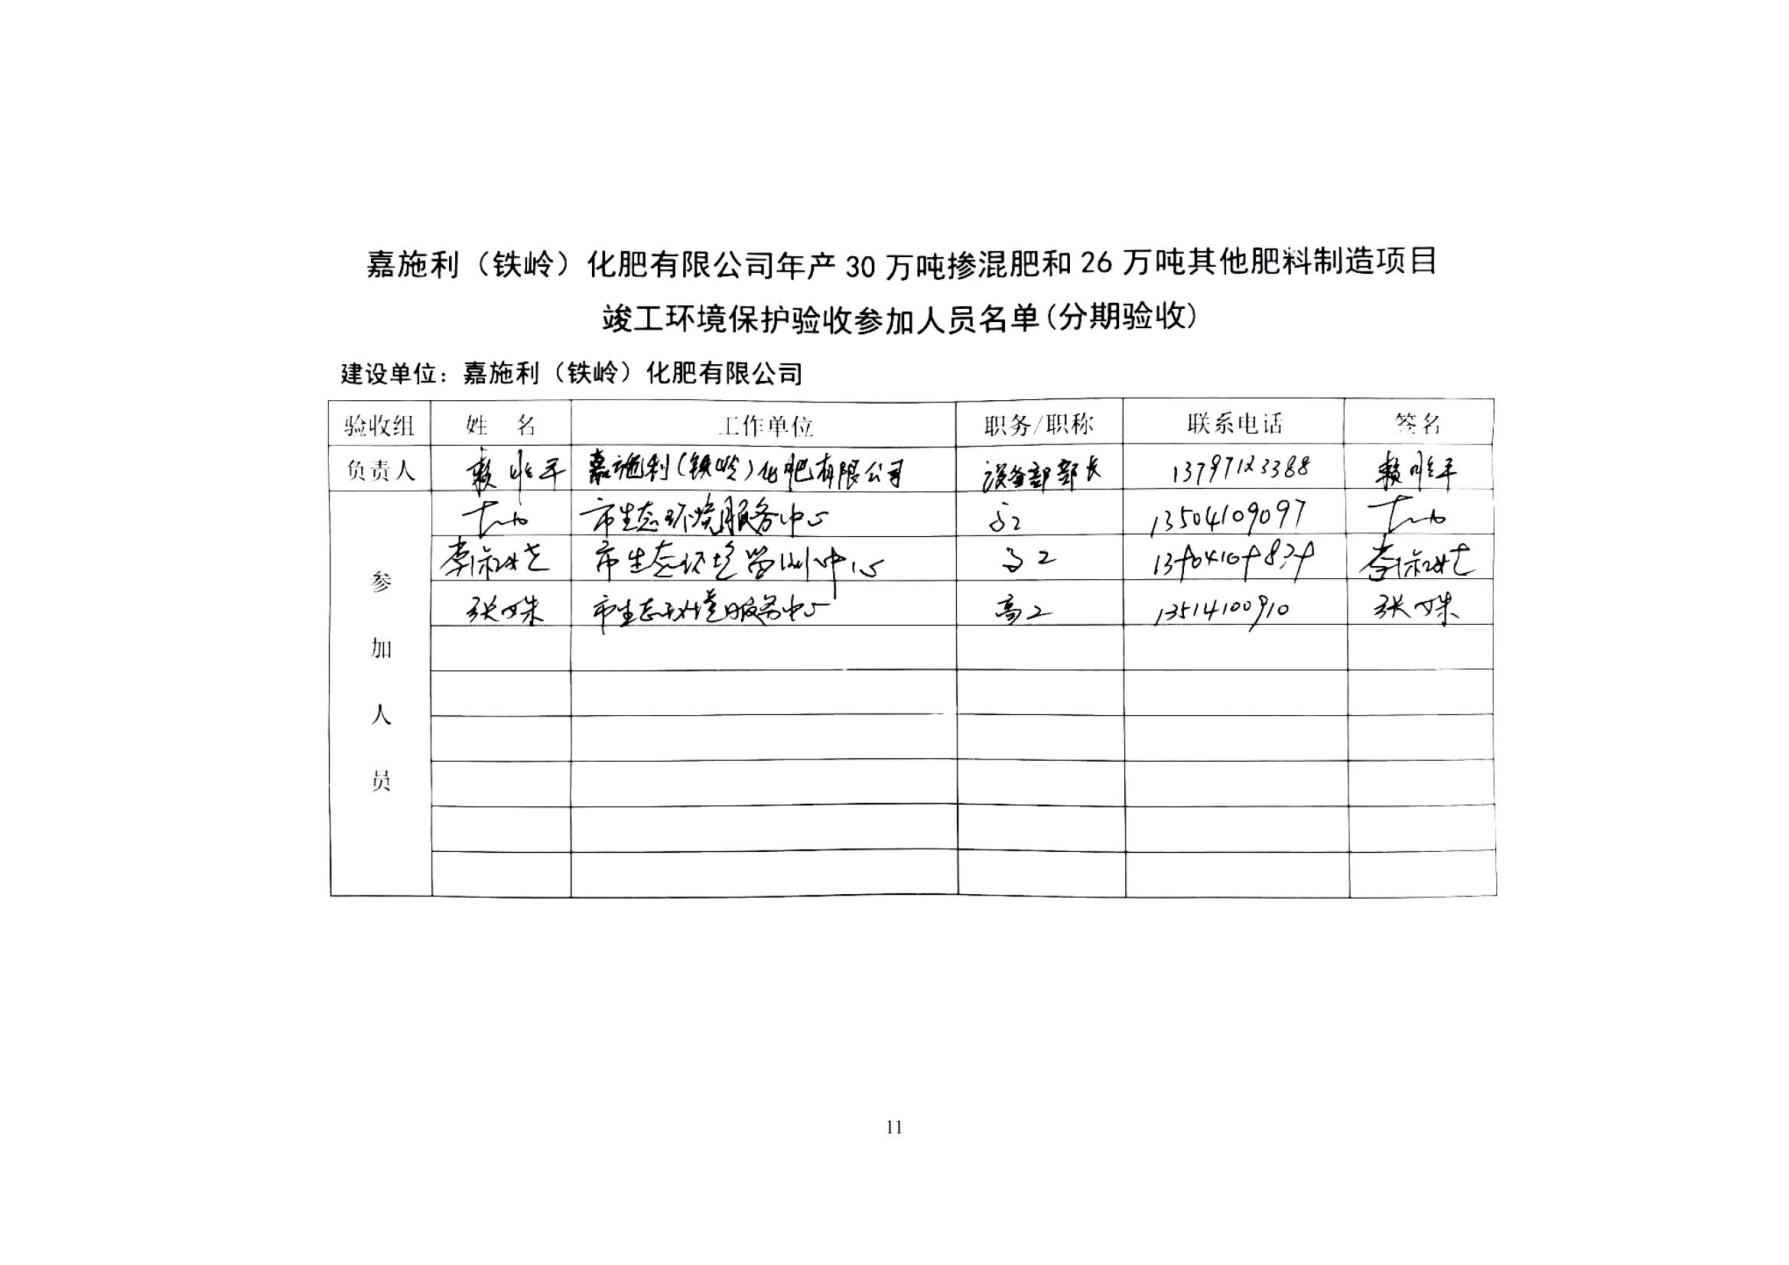 嘉施利（铁岭）化肥有限公司年产 30 万吨掺混肥和 26 万吨其他肥料制造项目
竣工环境保护验收参加人员名单(分期验收)
建设单位：嘉施利（铁岭）化肥有限公司
验收组 姓 名 工作单位 职务/职称 联系电话 签名
负责人 嘉施利(铁岭)化肥有限公司 设备部部长 13797123388
市生态环境服务中心 高工 13504109097
参 市生态环境监测中心 高工
张 市生态环境服务中心 高工 13514100910 张
加
人
员
11